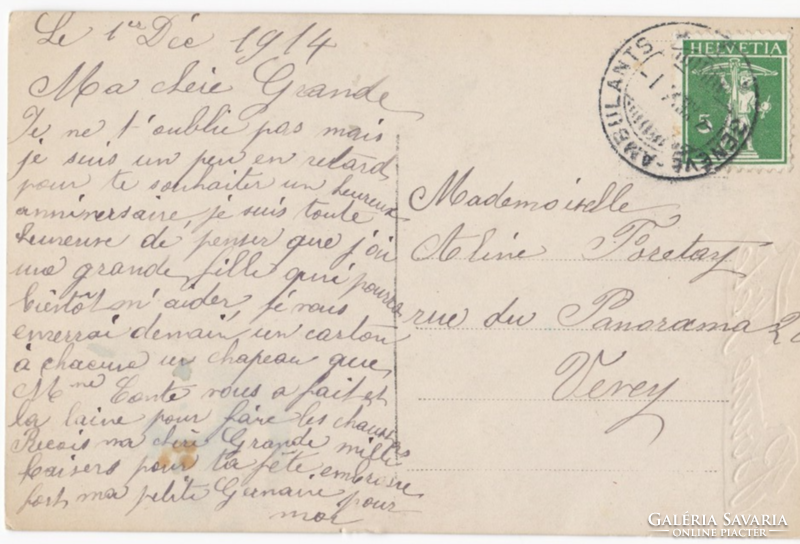 Le 1er Déc 1914
Ma chère Grande
Je ne t'oublie pas mais
je suis un peu en retard
pour te souhaiter un heureux
anniversaire, je suis toute
heureuse de penser que j'ai
ma grande fille qui pourra
bientôt m'aider, je vous
enverrai demain un carton
à chacune un chapeau que
Mme Conte vous a fait et
la laine pour faire les
Reçois ma chère Grande mille
baisers pour ta fête embrasse
fort ma petite Germaine pour
moi
HELVETIA
5
AMBULANTS
GENÈVE
Mademoiselle
Aline Foretay
rue du Panorama 20
Vevey
GALÉRIA SAVARIA
ONLINE PIACTÉR